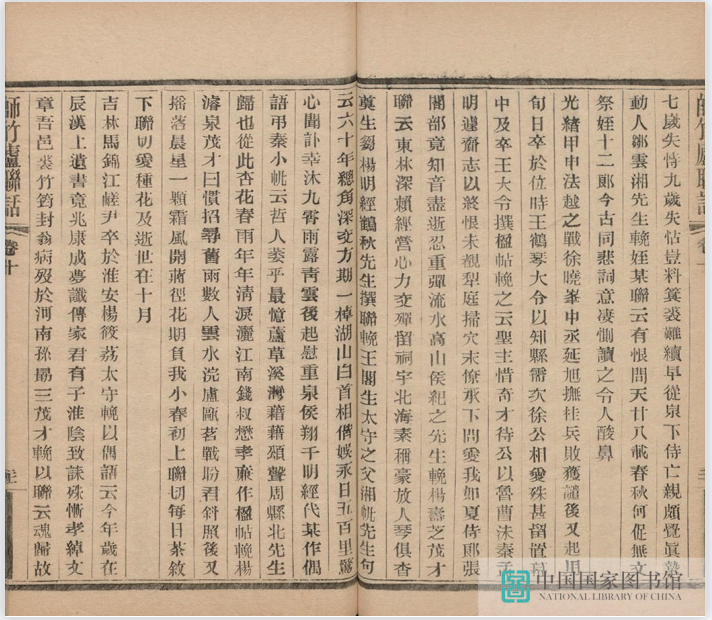 師竹廬聯話 卷十
七歲失恃九歲失怙豈料箕裘難續早從泉下侍亡親頗覺眞摯
動人鄒雲湘先生輓姪某聯云有恨問天廿八載春秋何促無文
祭姪十二郎今古同悲詞意凄惻讀之令人酸鼻
光緒甲申法越之戰徐曉峯中丞延旭撫桂兵敗獲譴後又起用
旬日卒於位時王鶴琴大令以知縣需次徐公相愛殊甚留置
中及卒王大令撰楹帖輓之云聖主惜奇才待公以魯曹沬秦孟
明遽齎志以終恨未覩犁庭掃穴末僚承下問愛我如夏侍郎張
閣部竟知音盡逝忍重彈流水高山侯紀之先生輓楊壽芝茂才
聯云東林深賴經營心力交殫留祠宇北海素稱豪放人琴俱杳
奠生芻楊明經鶴秋先生撰聯輓王閣生太守之父湘帆先生句
云六十年總角深交方期一棹湖山白首相偕娛永日五百里驚
心聞訃幸沐九霄雨露靑雲後起慰重泉侯翔千明經代某作偶
語弔秦小帆云哲人萎乎最憶蘆草溪灣藉藉頌聲周縣北先生
歸也從此杏花春雨年年清淚灑江南錢叔懋孝廉作楹帖輓楊
濬泉茂才曰慣招尋舊雨數人雲水浣廬甌茗戰盼君斜照後又
搖落晨星一顆霜風開蔣徑花期負我小春初上聯切每日茶敘
下聯切愛種花及逝世在十月
吉林馬錦江嵯尹卒於淮安楊筱荔太守輓以偶語云今年歲在
辰漢上遺書竟兆康成夢讖傳家君有子淮陰致誄殊慚孝綽文
章吾邑裘竹筠封翁病歿於河南孫揚三茂才輓以聯云魂歸故
師竹廬聯話 卷十
中国国家图书馆
NATIONAL LIBRARY OF CHINA